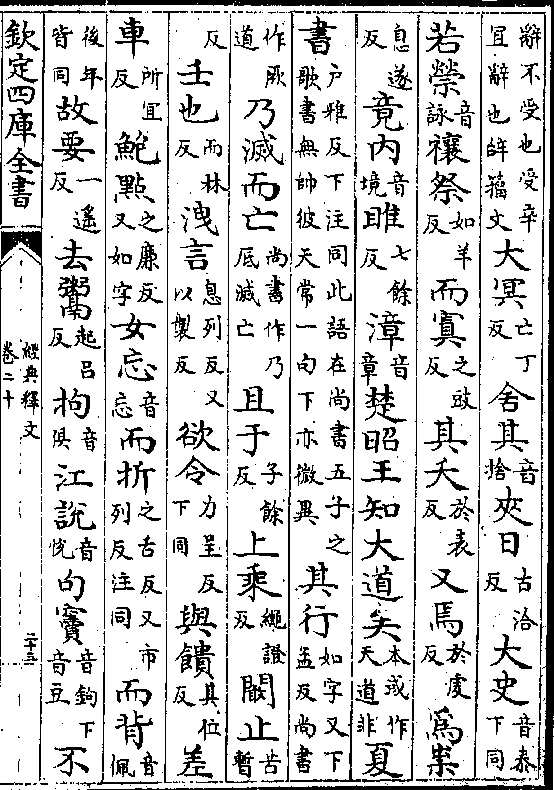 辭不受也受辛宜辭也辤籕文大冥亡丁反舍其音捨夾日古洽反大史音泰下同
若榮音詠禳祭如羊反而寘之豉反其夭於表反又焉於虔反為祟
息遂反竟内音境雎七餘反漳音章楚昭王知大道矣本或作天道非夏
書户雅反下注同此語在尚書五子之歌書無帥彼天常一句下亦微異其行如字又下孟反尚書
作厥道乃滅而亡尚書作乃厎滅亡且于子餘反上乘繩證反闞止苦暫
反壬也而林反洩言息列反又以製反欲令力呈反下同與饋其位反差
車所宜反鮑點之廉反又如字女忘音忘而折之舌反又市列反注同而背音佩
後年皆同故要一遥反去鬻起吕反拘音俱江說音悅句竇音鉤下音豆不
欽定四庫全書
經典釋文
卷二十
二十三